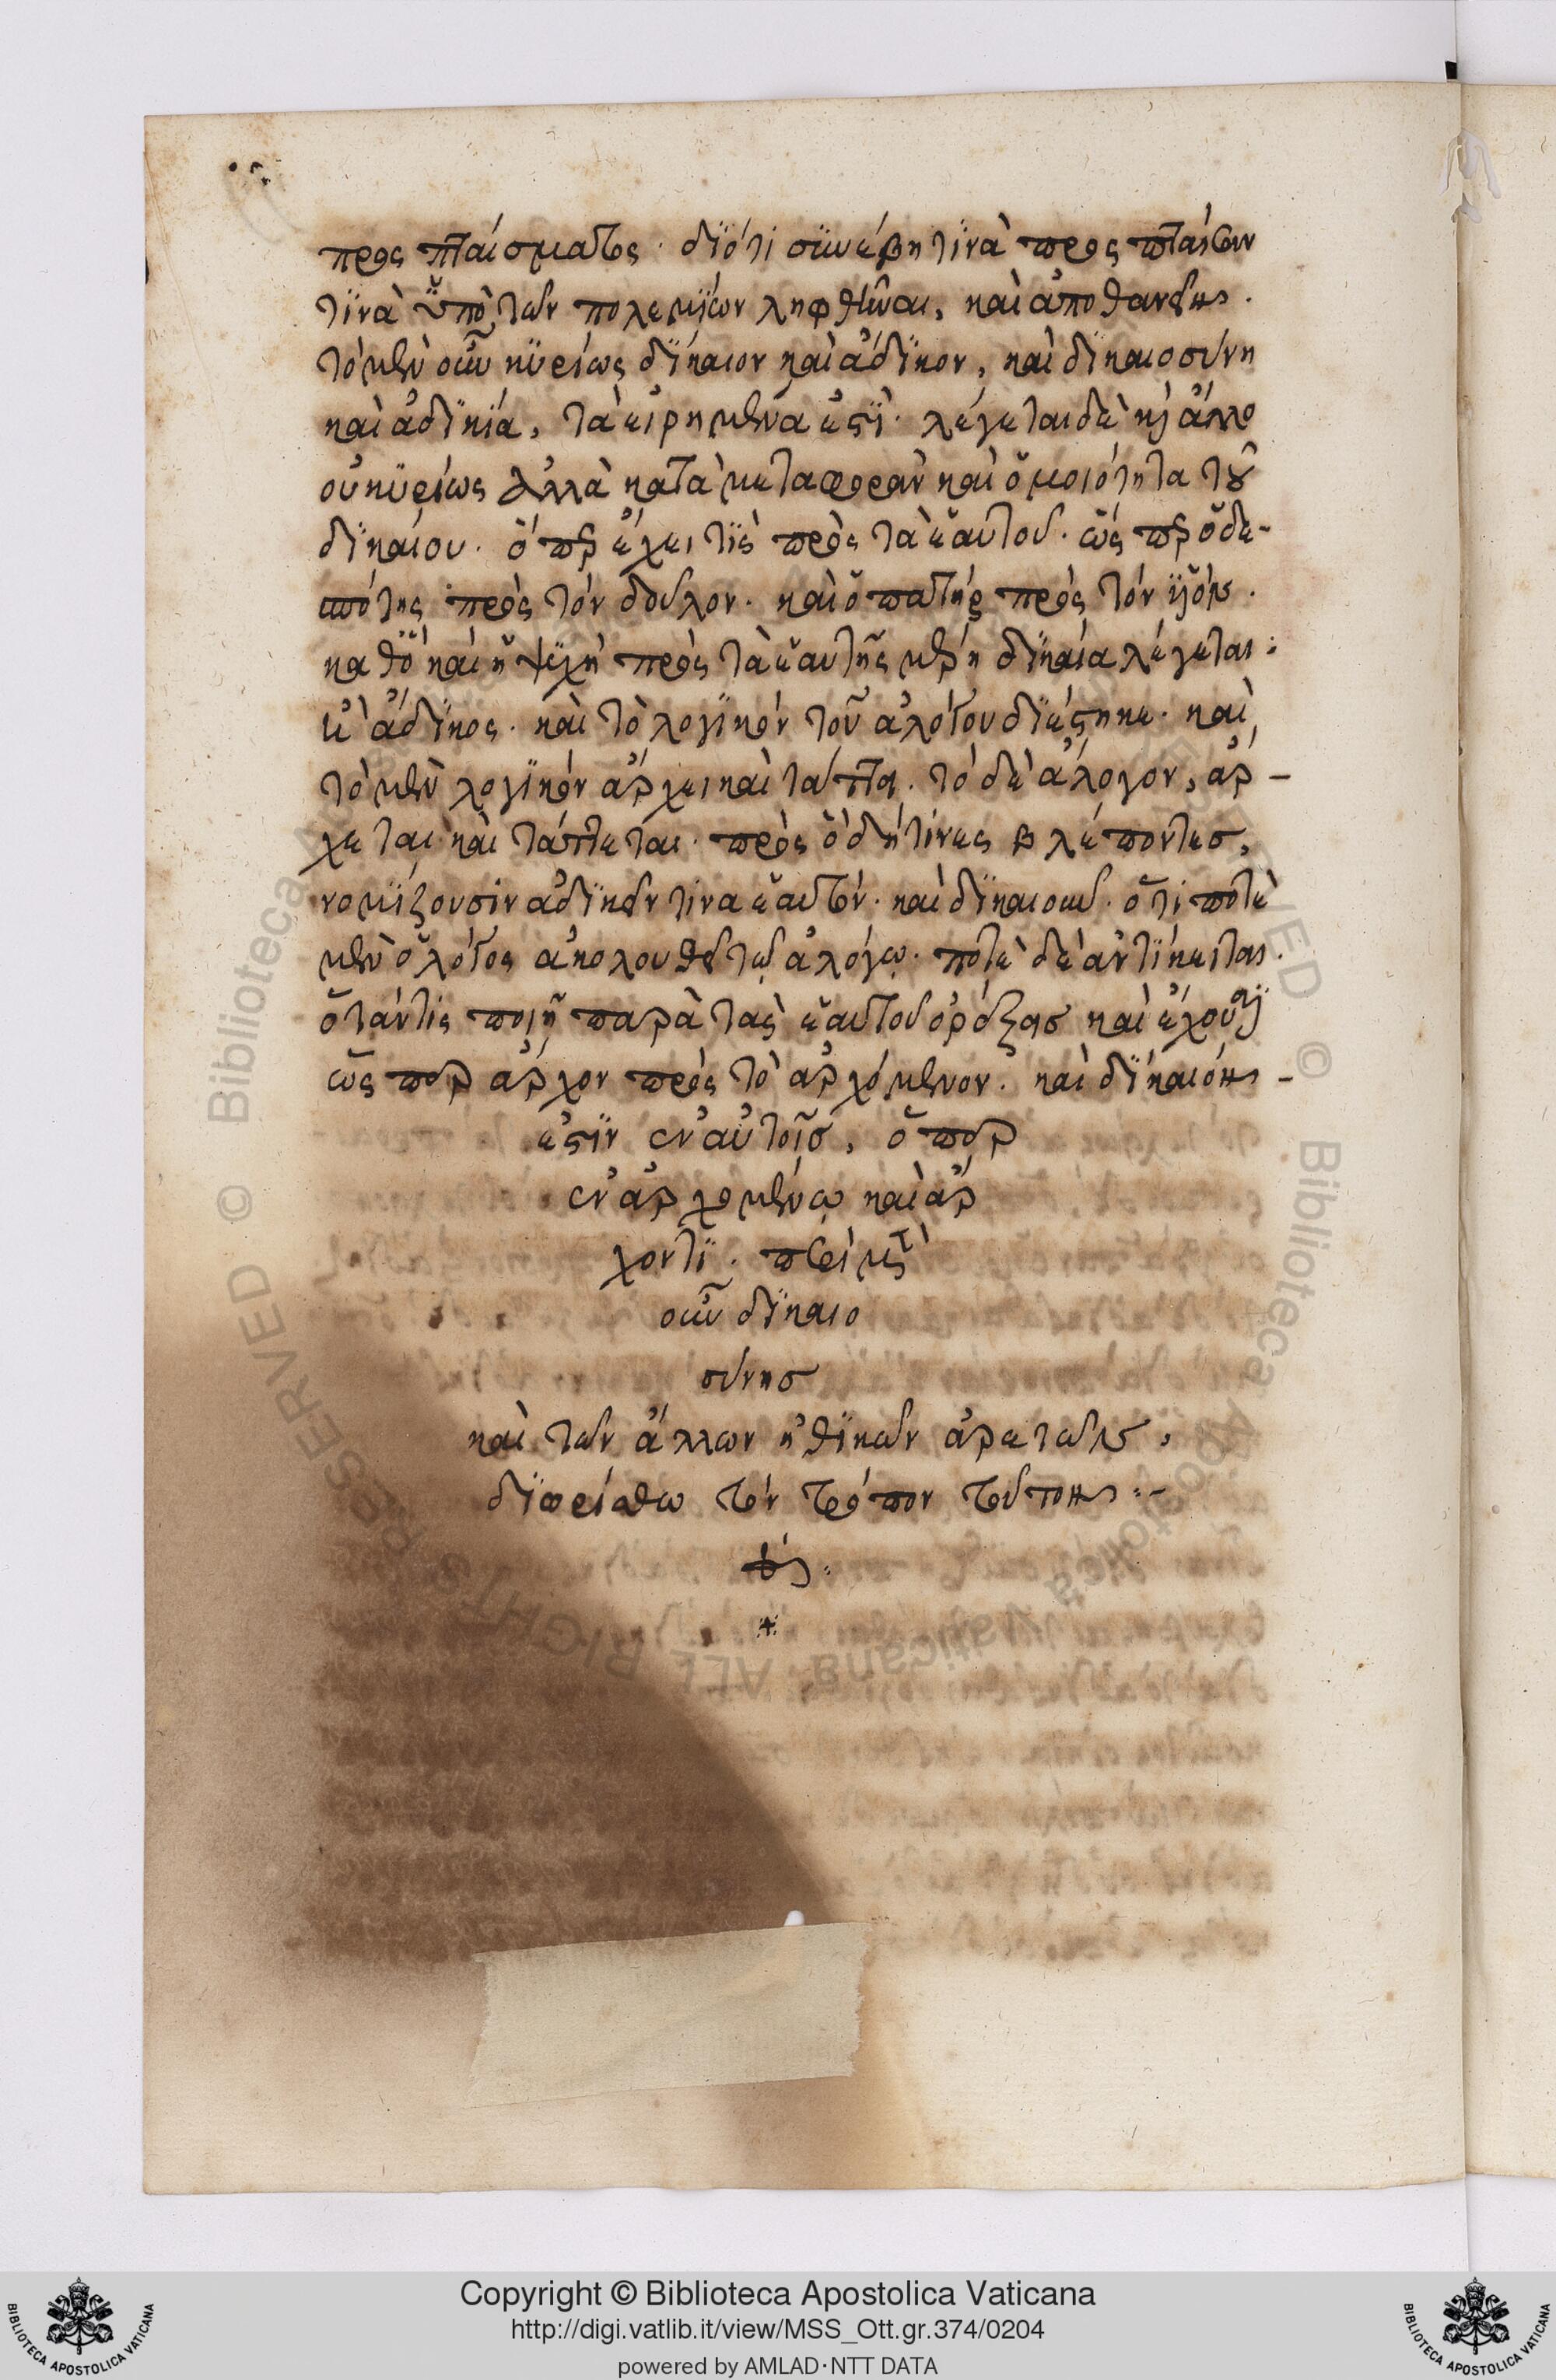 προς πταίσματος· διότι συνέβη τινὰ προς πταίσαν
τινὰ ὑπὸ τῶν πολεμίων ληφθῆναι, καὶ ἀποθανεῖν.
τὸ μὲν οὖν κυρίως δίκαιον καὶ ἄδικον, καὶ δικαιοσύνη
καὶ ἀδικία, τὰ εἰρημένα ἐστί· λέγεται δὲ καὶ ἄλλο
οὐ κυρίως ἀλλὰ κατὰ μεταφορὰν καὶ ὁμοιότητα τοῦ
δικαίου· ὅπερ ἔχει τις πρὸς τὰ ἑαυτοῦ· ὥσπερ ὁ δε-
σπότης πρὸς τὸν δοῦλον· καὶ ὁ πατὴρ πρὸς τὸν υἱόν.
καθὸ καὶ ἡ ψυχὴ πρὸς τὰ ἑαυτῆς μέρη δικαία λέγεται·
ἢ ἄδικος· καὶ τὸ λογικὸν τοῦ ἀλόγου διέστηκε· καὶ
τὸ μὲν λογικὸν ἄρχει καὶ τάττει· τὸ δὲ ἄλογον, ἄρ-
χεται καὶ τάττεται· πρὸς ὃ δή τινες βλέποντες,
νομίζουσιν ἀδικεῖν τινα ἑαυτόν· καὶ δικαιοῦν· ὅτι ποτὲ
μὲν ὁ λόγος ἀκολουθεῖ τῷ ἀλόγῳ· ποτὲ δὲ ἀντίκειται·
ὅτάν τις ποιῇ παρὰ τὰς ἑαυτοῦ ὀρέξεις καὶ ἔχουσι
ὥσπερ ἄρχον πρὸς τὸ ἀρχόμενον· καὶ δίκαιόν -
ἐστιν ἐν αὐτοῖς, ὅπερ
ἐν ἀρχομένῳ καὶ ἄρ
χοντι· περὶ μὲν
οὖν δικαιο
σύνης
καὶ τῶν ἄλλων ἠθικῶν ἀρετῶν,
διωρίσθω τὸν τρόπον τοῦτον:-
Copyright © Biblioteca Apostolica Vaticana
http://digi.vatlib.it/view/MSS_Ott.gr.374/0204
powered by AMLAD·NTT DATA